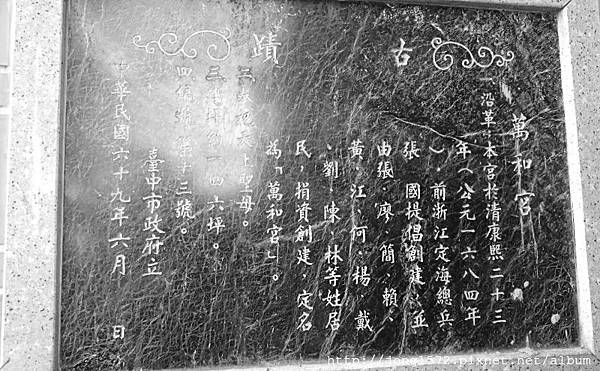 古蹟
萬和宮
一沿革：本宮於清康熙二十三
年（公元一六八四年
），前浙江定海總兵
張 國提倡創建，並
由張、廖、簡、賴、
黃、江、何、楊、戴
、劉、陳、林等姓居
民，捐資創建，定名
為「萬和宮」。
天上聖母。
三 一四六坪。
四 號 第十三號。
臺中市政府立
中華民國六十九年六月 日
http://jong1572.pixnet.net/album